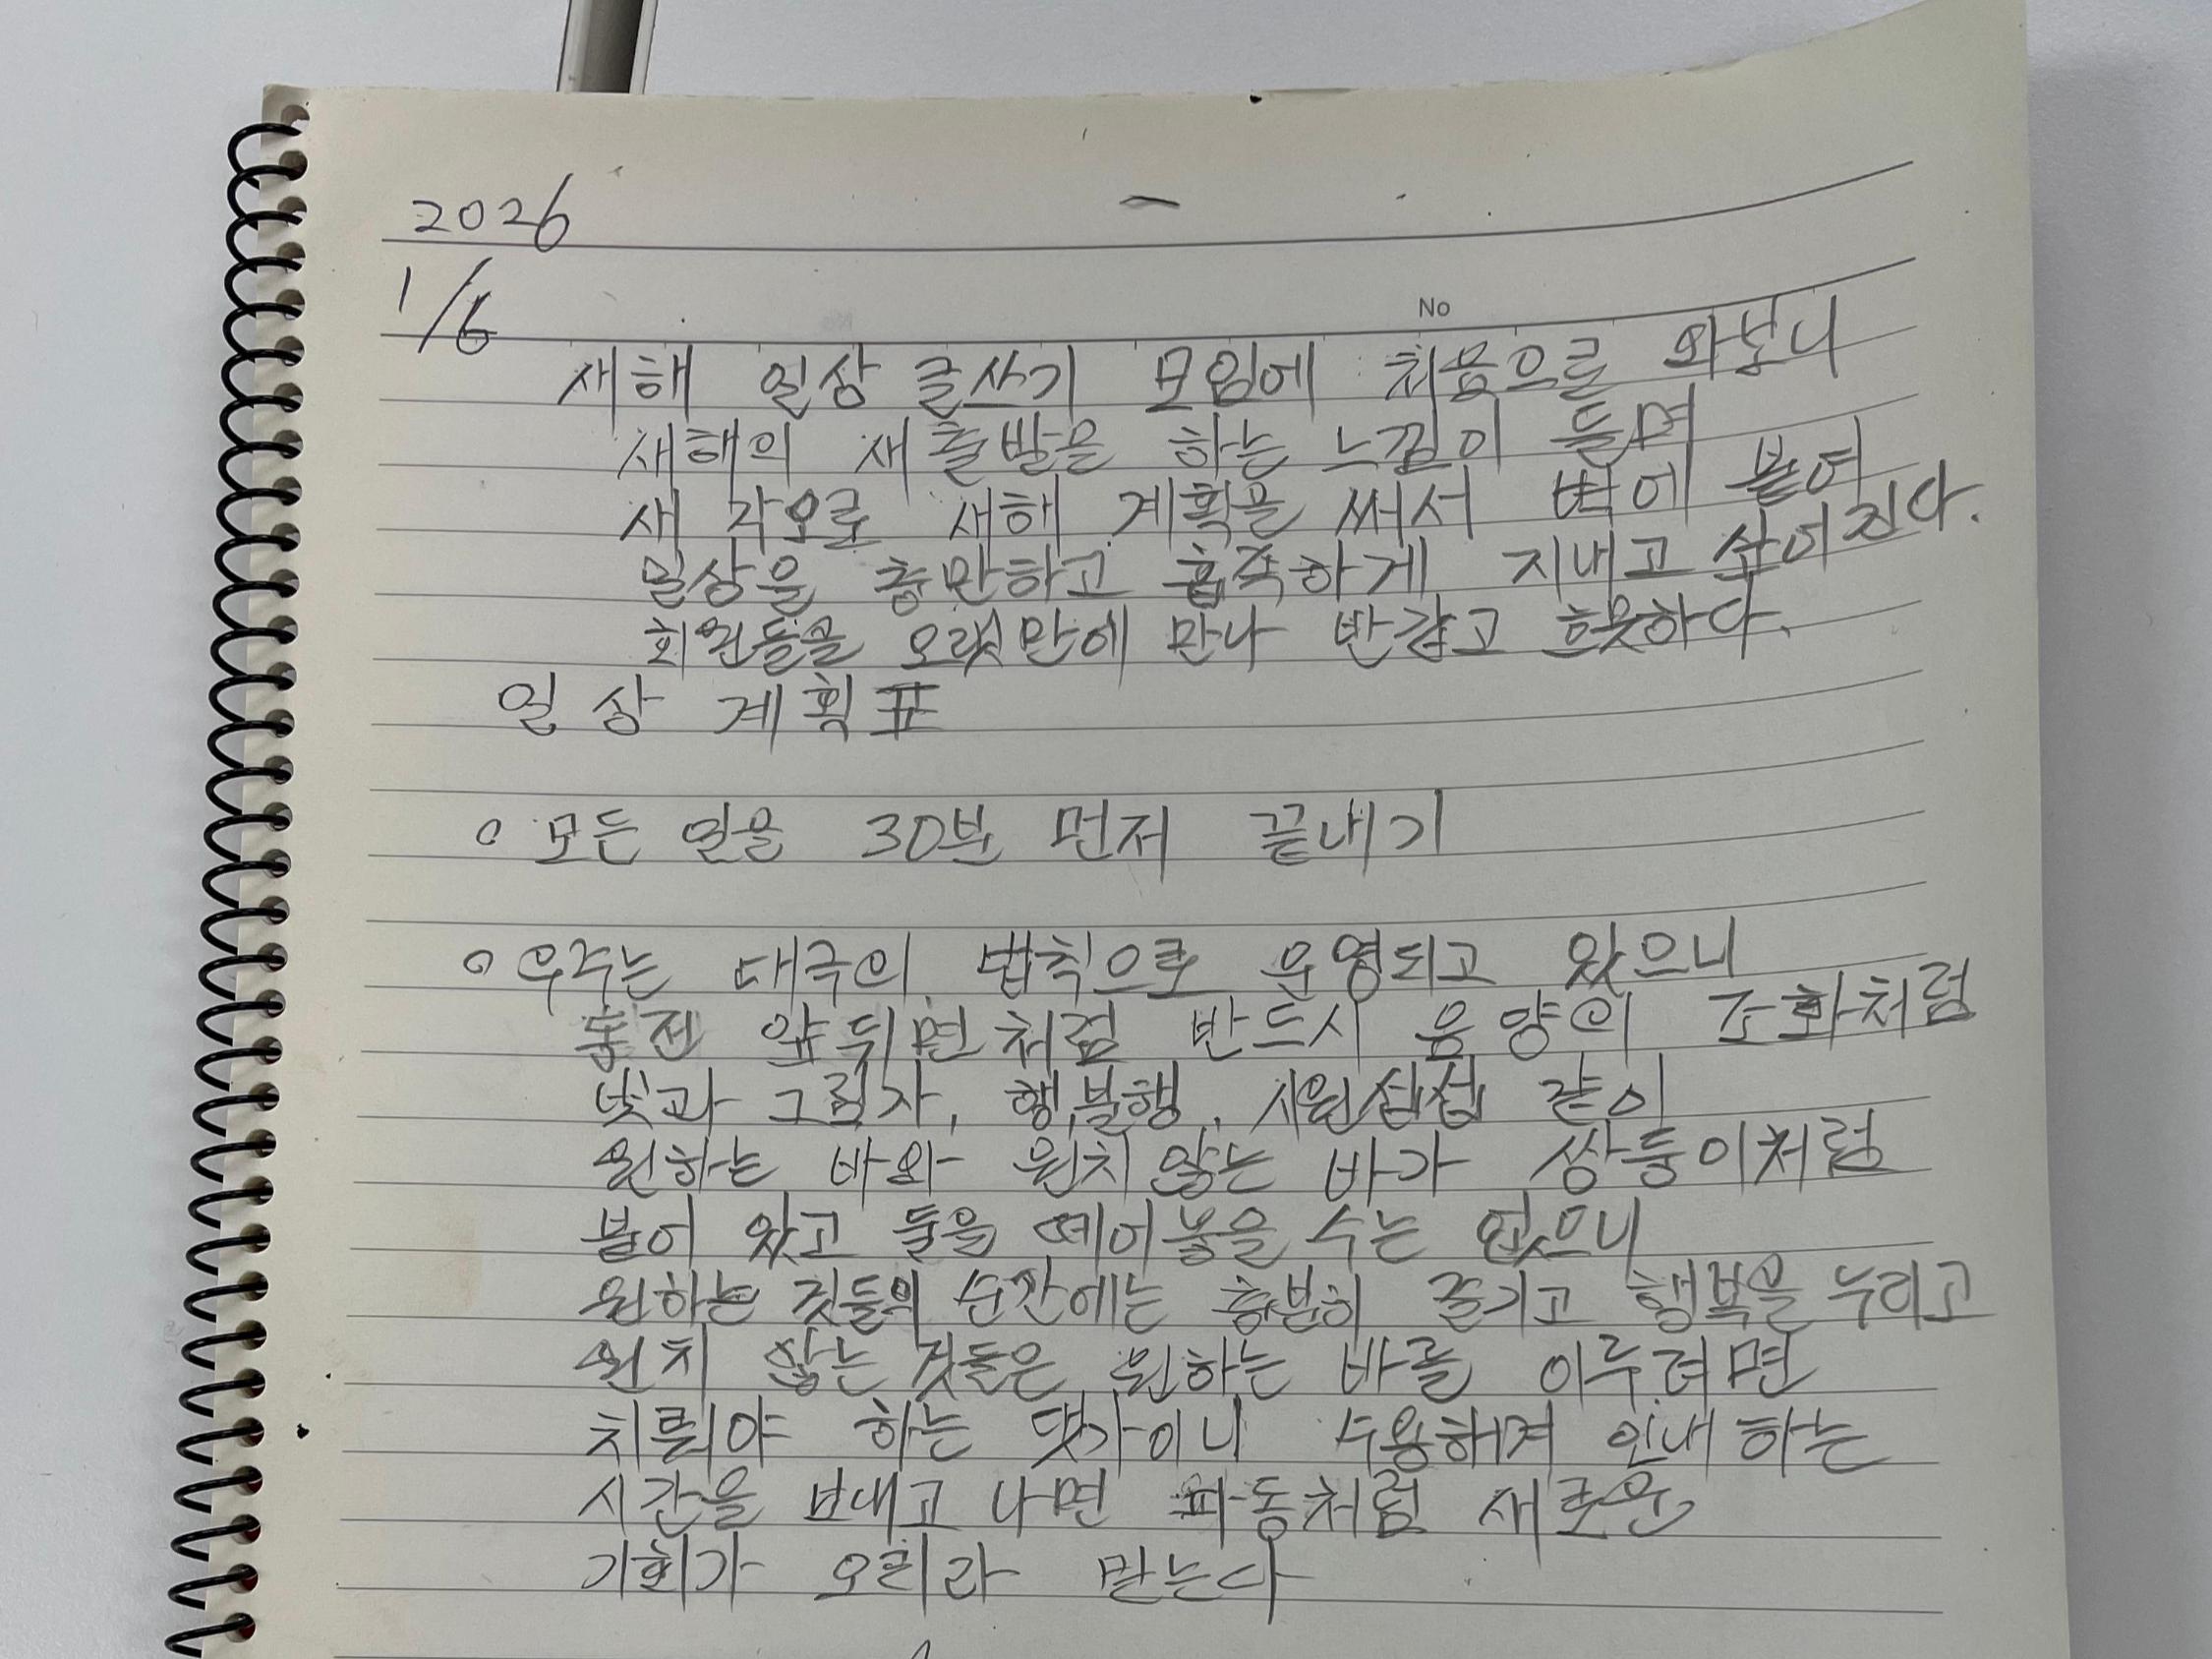 2026
1/6
No
새해 일상 글쓰기 모임에 처음으로 와보니
새해의 새출발을 하는 느낌이 들며
새 각오로 새해 계획을 써서 벽에 붙여
일상을 충만하고 흡족하게 지내고 싶어진다.
회원들을 오랫만에 만나 반갑고 흐뭇하다.
일상 계획표
○ 모든 일을 30분 먼저 끝내기
○ 우주는 대극의 법칙으로 운영되고 있으니
동전 앞뒤면처럼 반드시 음양의 조화처럼
빛과 그림자, 행,불행, 시원섭섭 같이
원하는 바와 원치 않는 바가 쌍둥이처럼
붙어 있고 둘을 떼어놓을 수는 없으니
원하는 것들의 순간에는 충분히 즐기고 행복을 누리고
원치 않는 것들은 원하는 바를 이루려면
치뤄야 하는 댓가이니 수용하며 인내하는
시간을 보내고 나면 파동처럼 새로운
기회가 오리라 믿는다